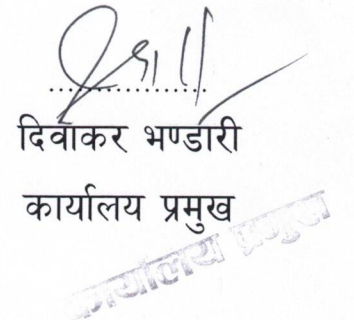 ....................
दिवाकर भण्डारी
कार्यालय प्रमुख
कार्यालय प्रमुख